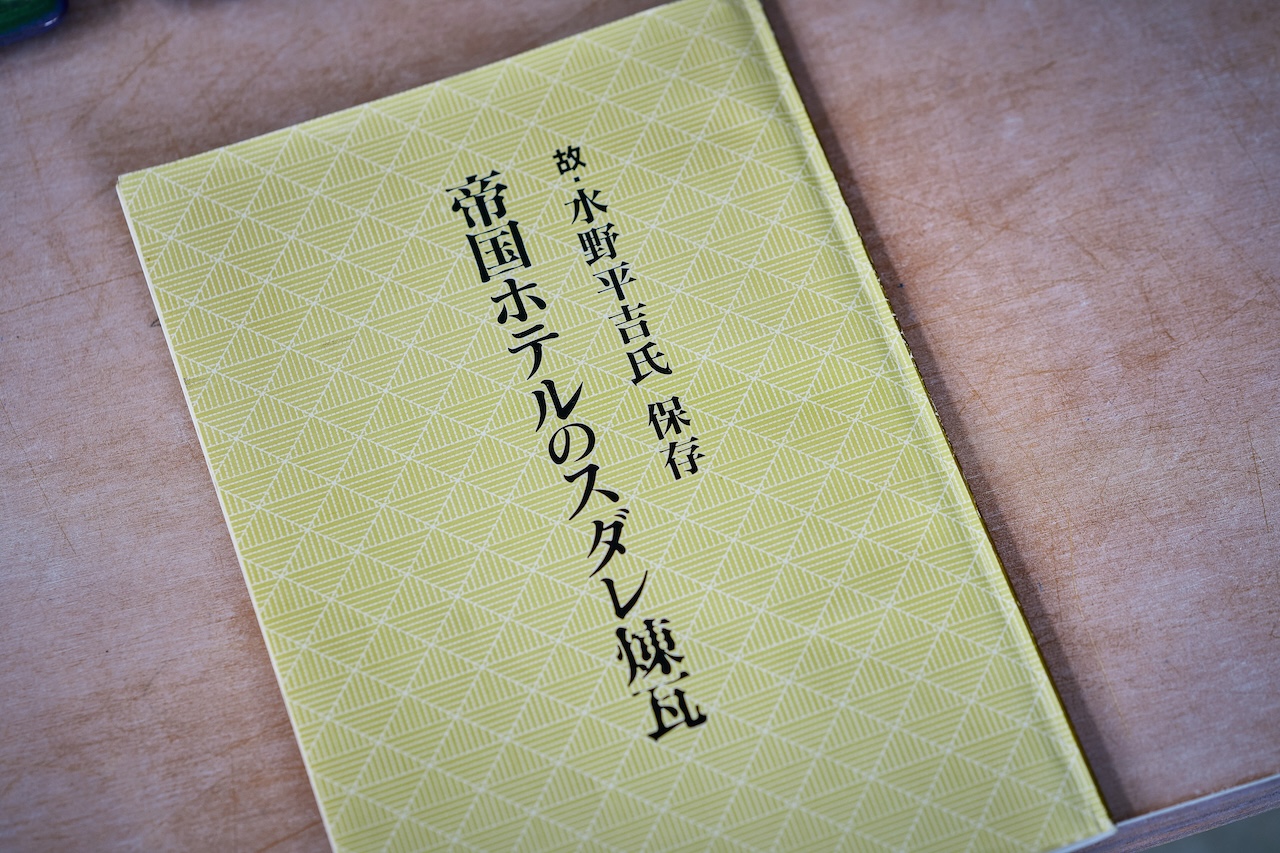 故・水野平吉氏 保存
帝国ホテルのスダレ煉瓦